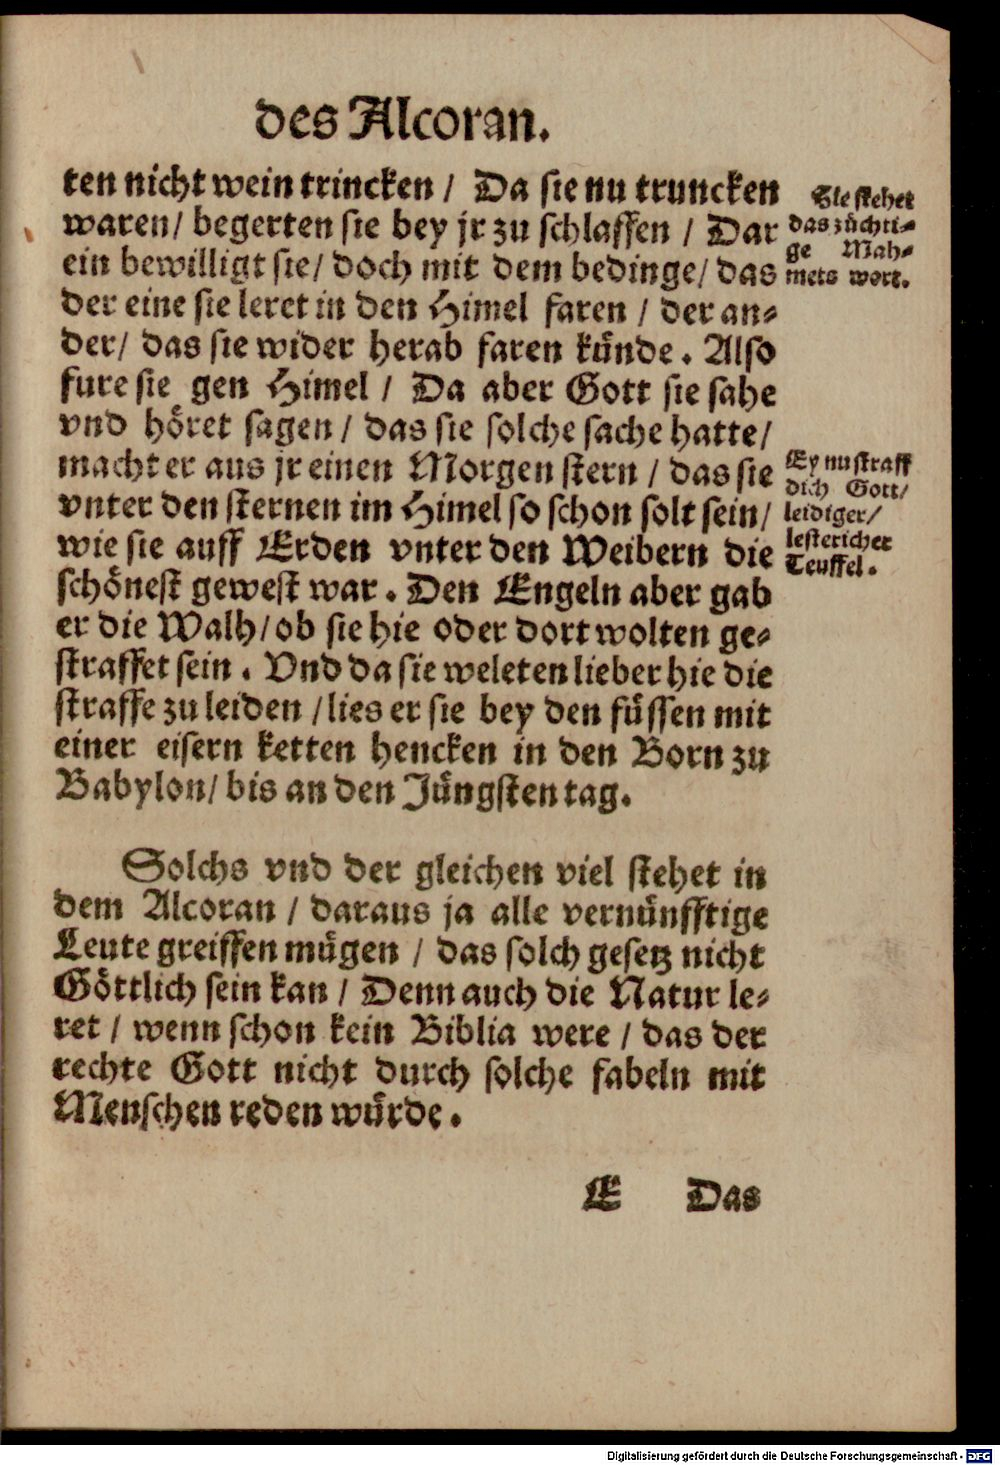 des Alcoran.
ten nicht wein trincken / Da sie nu truncken
waren / begerten sie bey jr zu schlaffen / Dar
ein bewilligt sie / doch mit dem bedinge / das
der eine sie leret in den Himel faren / der an-
der / das sie wider herab faren kuͤnde. Also
fure sie gen Himel / Da aber Gott sie sahe
vnd hoͤret sagen / das sie solche sache hatte /
macht er aus jr einen Morgen stern / das sie
vnter den sternen im Himel so schon solt sein /
wie sie auff Erden vnter den Weibern die
schoͤnest gewest war. Den Engeln aber gab
er die Walh / ob sie hie oder dort wolten ge-
straffet sein. Vnd da sie weleten lieber hie die
straffe zu leiden / lies er sie bey den fuͤssen mit
einer eisern ketten hencken in den Born zu
Babylon / bis an den Juͤngsten tag.
Sie stehet
das zuͤchti-
ge Mah-
mets wort.
Ey nu straff
dich Gott /
leidiger /
lestericher
Teuffel.
Solchs vnd der gleichen viel stehet in
dem Alcoran / daraus ja alle vernuͤnfftige
Leute greiffen muͤgen / das solch gesetz nicht
Goͤttlich sein kan / Denn auch die Natur le-
ret / wenn schon kein Biblia were / das der
rechte Gott nicht durch solche fabeln mit
Menschen reden wuͤrde.
E Das
Digitalisierung gefördert durch die Deutsche Forschungsgemeinschaft - DFG